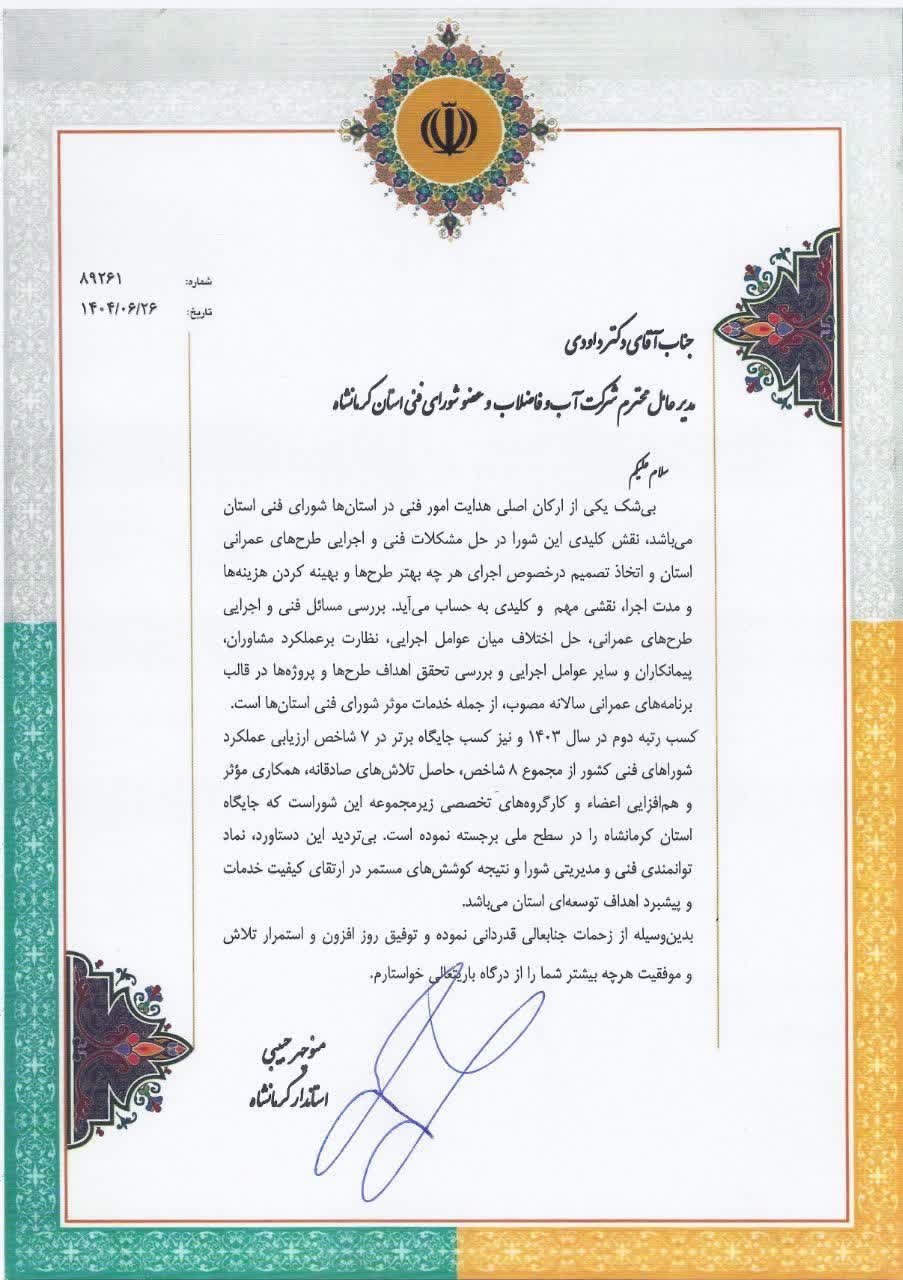 شماره: ۸۹۲۶۱
تاریخ: ۱۴۰۴/۰۶/۲۶
جناب آقای دکتر داودی
مدیر عامل محترم شرکت آب و فاضلاب و عضو شورای فنی استان کرمانشاه
سلام علیکم
بی‌شک یکی از ارکان اصلی هدایت امور فنی در استان‌ها شورای فنی استان
می‌باشد، نقش کلیدی این شورا در حل مشکلات فنی و اجرایی طرح‌های عمرانی
استان و اتخاذ تصمیم درخصوص اجرای هر چه بهتر طرح‌ها و بهینه کردن هزینه‌ها
و مدت اجرا، نقشی مهم و کلیدی به حساب می‌آید. بررسی مسائل فنی و اجرایی
طرح‌های عمرانی، حل اختلاف میان عوامل اجرایی، نظارت برعملکرد مشاوران،
پیمانکاران و سایر عوامل اجرایی و بررسی تحقق اهداف طرح‌ها و پروژه‌ها در قالب
برنامه‌های عمرانی سالانه مصوب، از جمله خدمات موثر شورای فنی استان‌ها است.
کسب رتبه دوم در سال ۱۴۰۳ و نیز کسب جایگاه برتر در ۷ شاخص ارزیابی عملکرد
شوراهای فنی کشور از مجموع ۸ شاخص، حاصل تلاش‌های صادقانه، همکاری مؤثر
و هم‌افزایی اعضاء و کارگروه‌های تخصصی زیرمجموعه این شوراست که جایگاه
استان کرمانشاه را در سطح ملی برجسته نموده است. بی‌تردید این دستاورد، نماد
توانمندی فنی و مدیریتی شورا و نتیجه کوشش‌های مستمر در ارتقای کیفیت خدمات
و پیشبرد اهداف توسعه‌ای استان می‌باشد.
بدین‌وسیله از زحمات جنابعالی قدردانی نموده و توفیق روز افزون و استمرار تلاش
و موفقیت هرچه بیشتر شما را از درگاه باریتعالی خواستارم.
منوچهر حبیبی
استاندار کرمانشاه